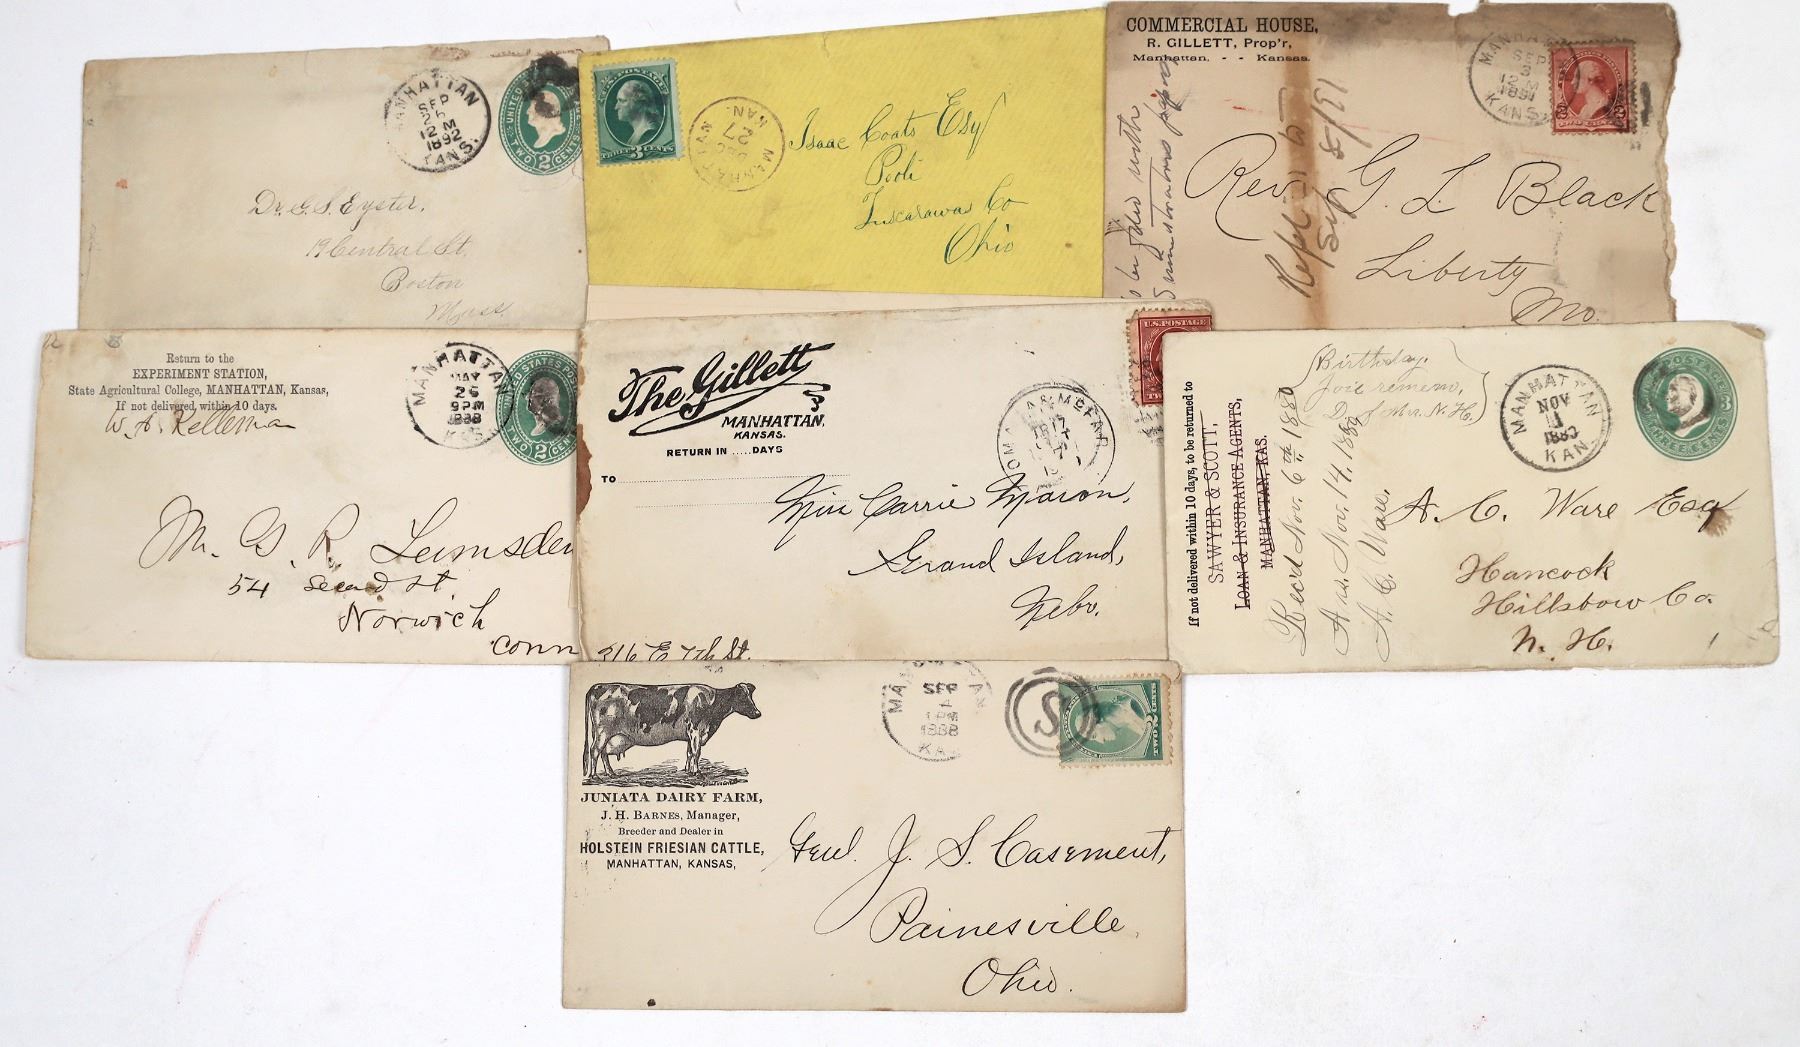 MANHATTAN
SEP
12 M
1892
KANS.
UNITED
TWO 2 CENTS
Dr. G. S. Eyster,
19 Central St.
Boston
Mass.
U.S. POSTAGE
3 CENTS
MANHATTAN
27
KAN.
Isaac Coats Esq
Pooli
Tuscarawas Co
Ohio
COMMERCIAL HOUSE,
R. GILLETT, Prop'r,
Manhattan, - - Kansas.
MANHATTAN
SEP
3
12 M
1891
KANS.
Rev. G. L. Black
Liberty
Mo.
Sep 8/91
Return to the
EXPERIMENT STATION,
State Agricultural College, MANHATTAN, Kansas,
If not delivered within 10 days.
W. A. Kellerman
MANHATTAN
MAY
26
9PM
1888
KAS.
UNITED STATES POSTAGE
TWO 2 CENTS
Mr. G. R. Lumsden
54 Second St.
Norwich
Conn
The Gillett
MANHATTAN,
KANSAS.
RETURN IN .....DAYS
TO
U.S. POSTAGE
Miss Carrie Mason,
Grand Island,
Nebr.
316 E 7th St.
If not delivered within 10 days, to be returned to
SAWYER & SCOTT,
LOAN & INSURANCE AGENTS,
MANHATTAN, KAS.
Recd Nov. 6th 1880
Ans. Nov. 14. 1880
A. C. Ware.
Birthday.
MANHATTAN
NOV
1
KAN.
THREE CENTS
A. C. Ware Esq
Hancock
Hillsboro Co.
N. H.
JUNIATA DAIRY FARM,
J. H. BARNES, Manager,
Breeder and Dealer in
HOLSTEIN FRIESIAN CATTLE,
MANHATTAN, KANSAS,
SEP
1888
KAS
S
TWO 2 CENTS
Genl. J. S. Casement,
Painesville
Ohio.